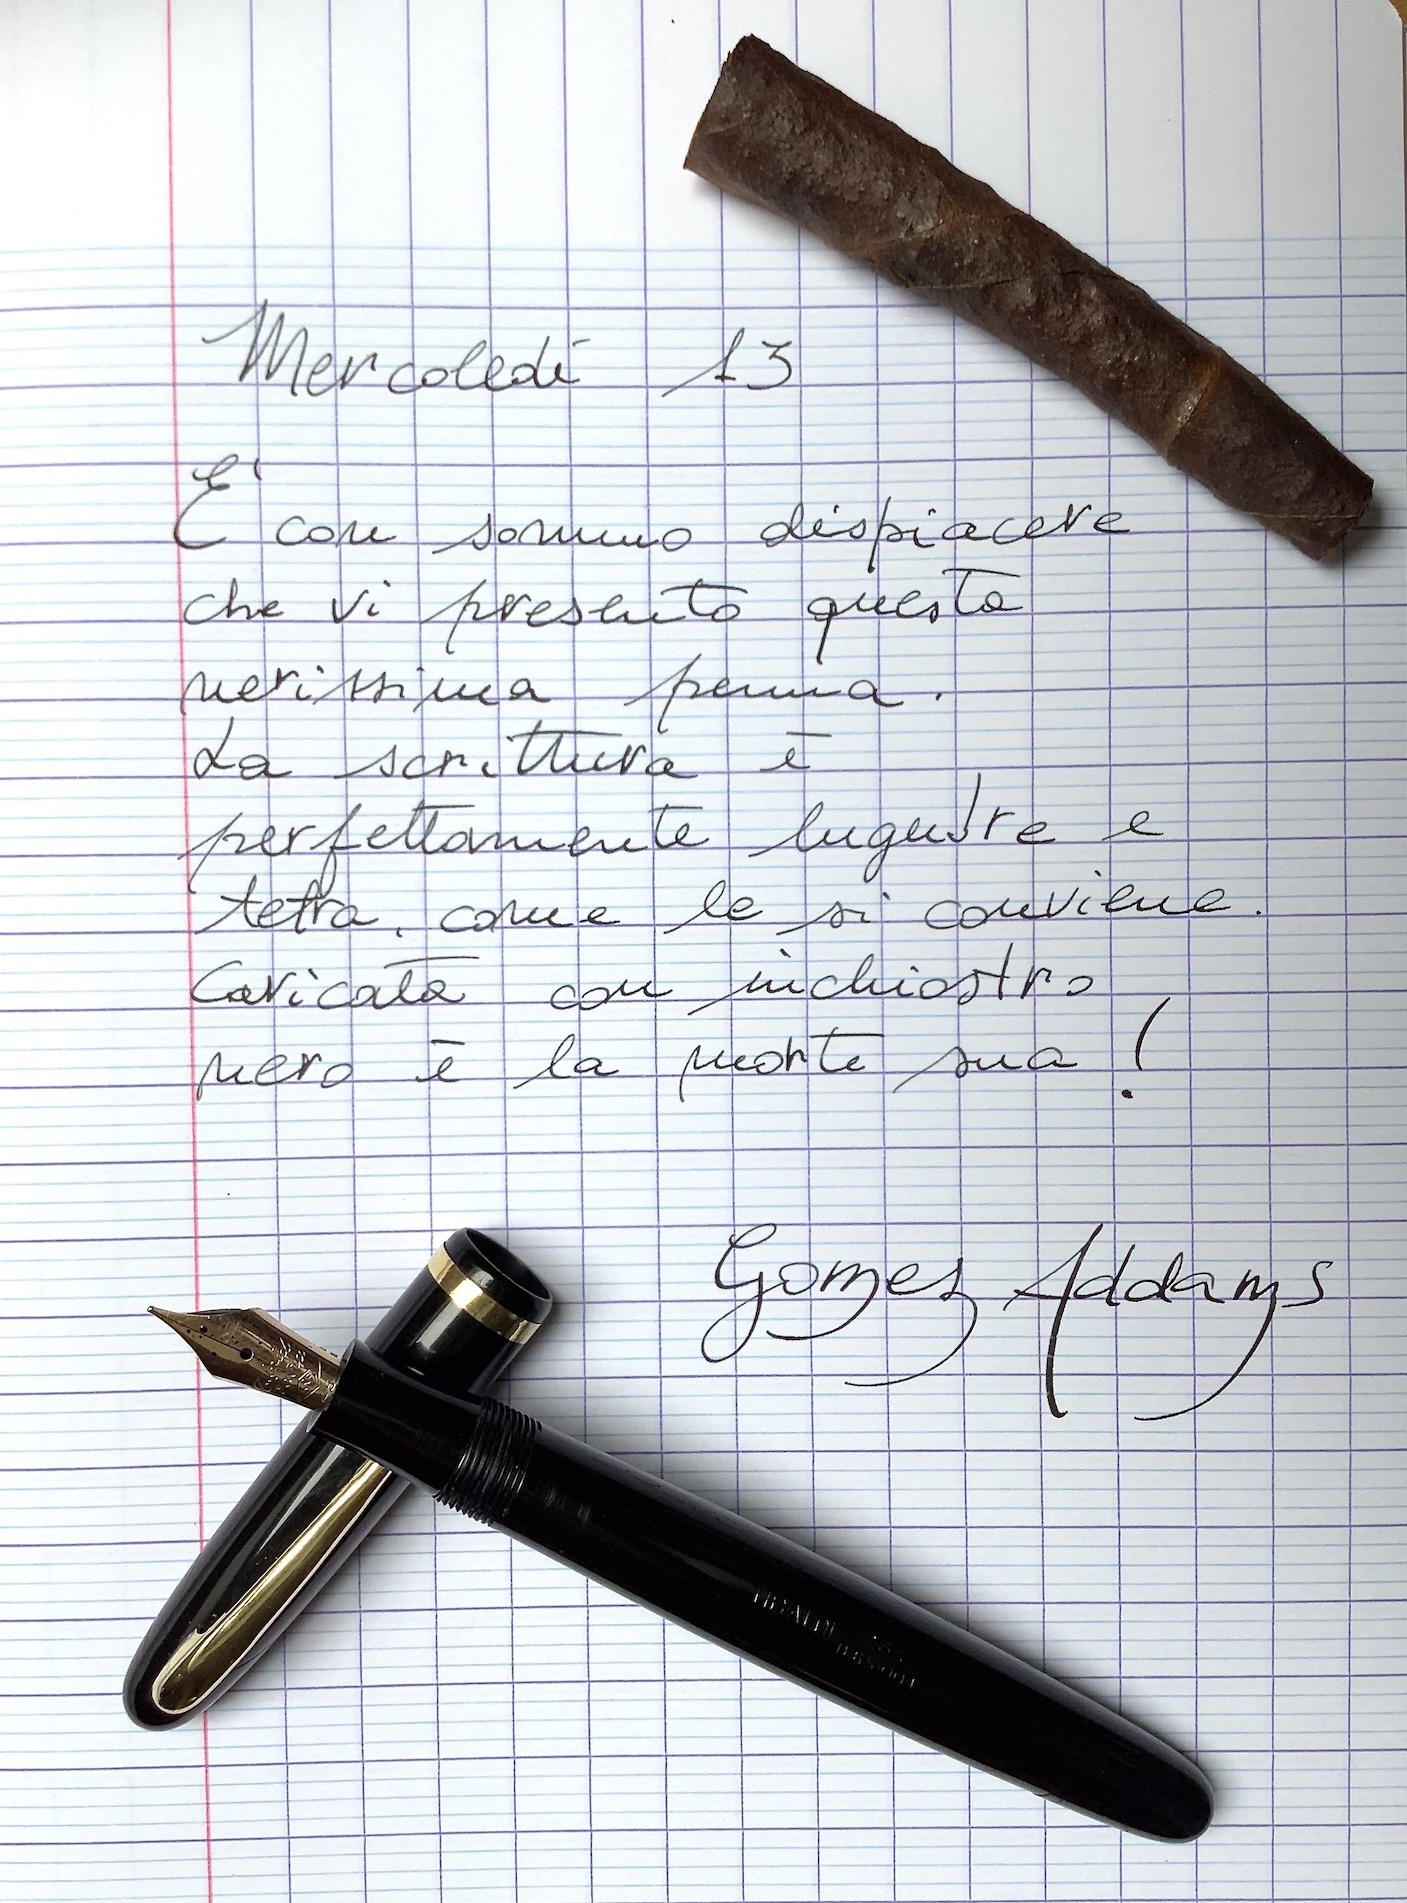 Mercoledì 13
E' con sommo dispiacere
che vi presento questa
nerissima penna.
La scrittura è
perfettamente lugubre e
tetra, come le si conviene.
Caricata con inchiostro
nero è la morte sua!
Gomez Addams
TIBALDI